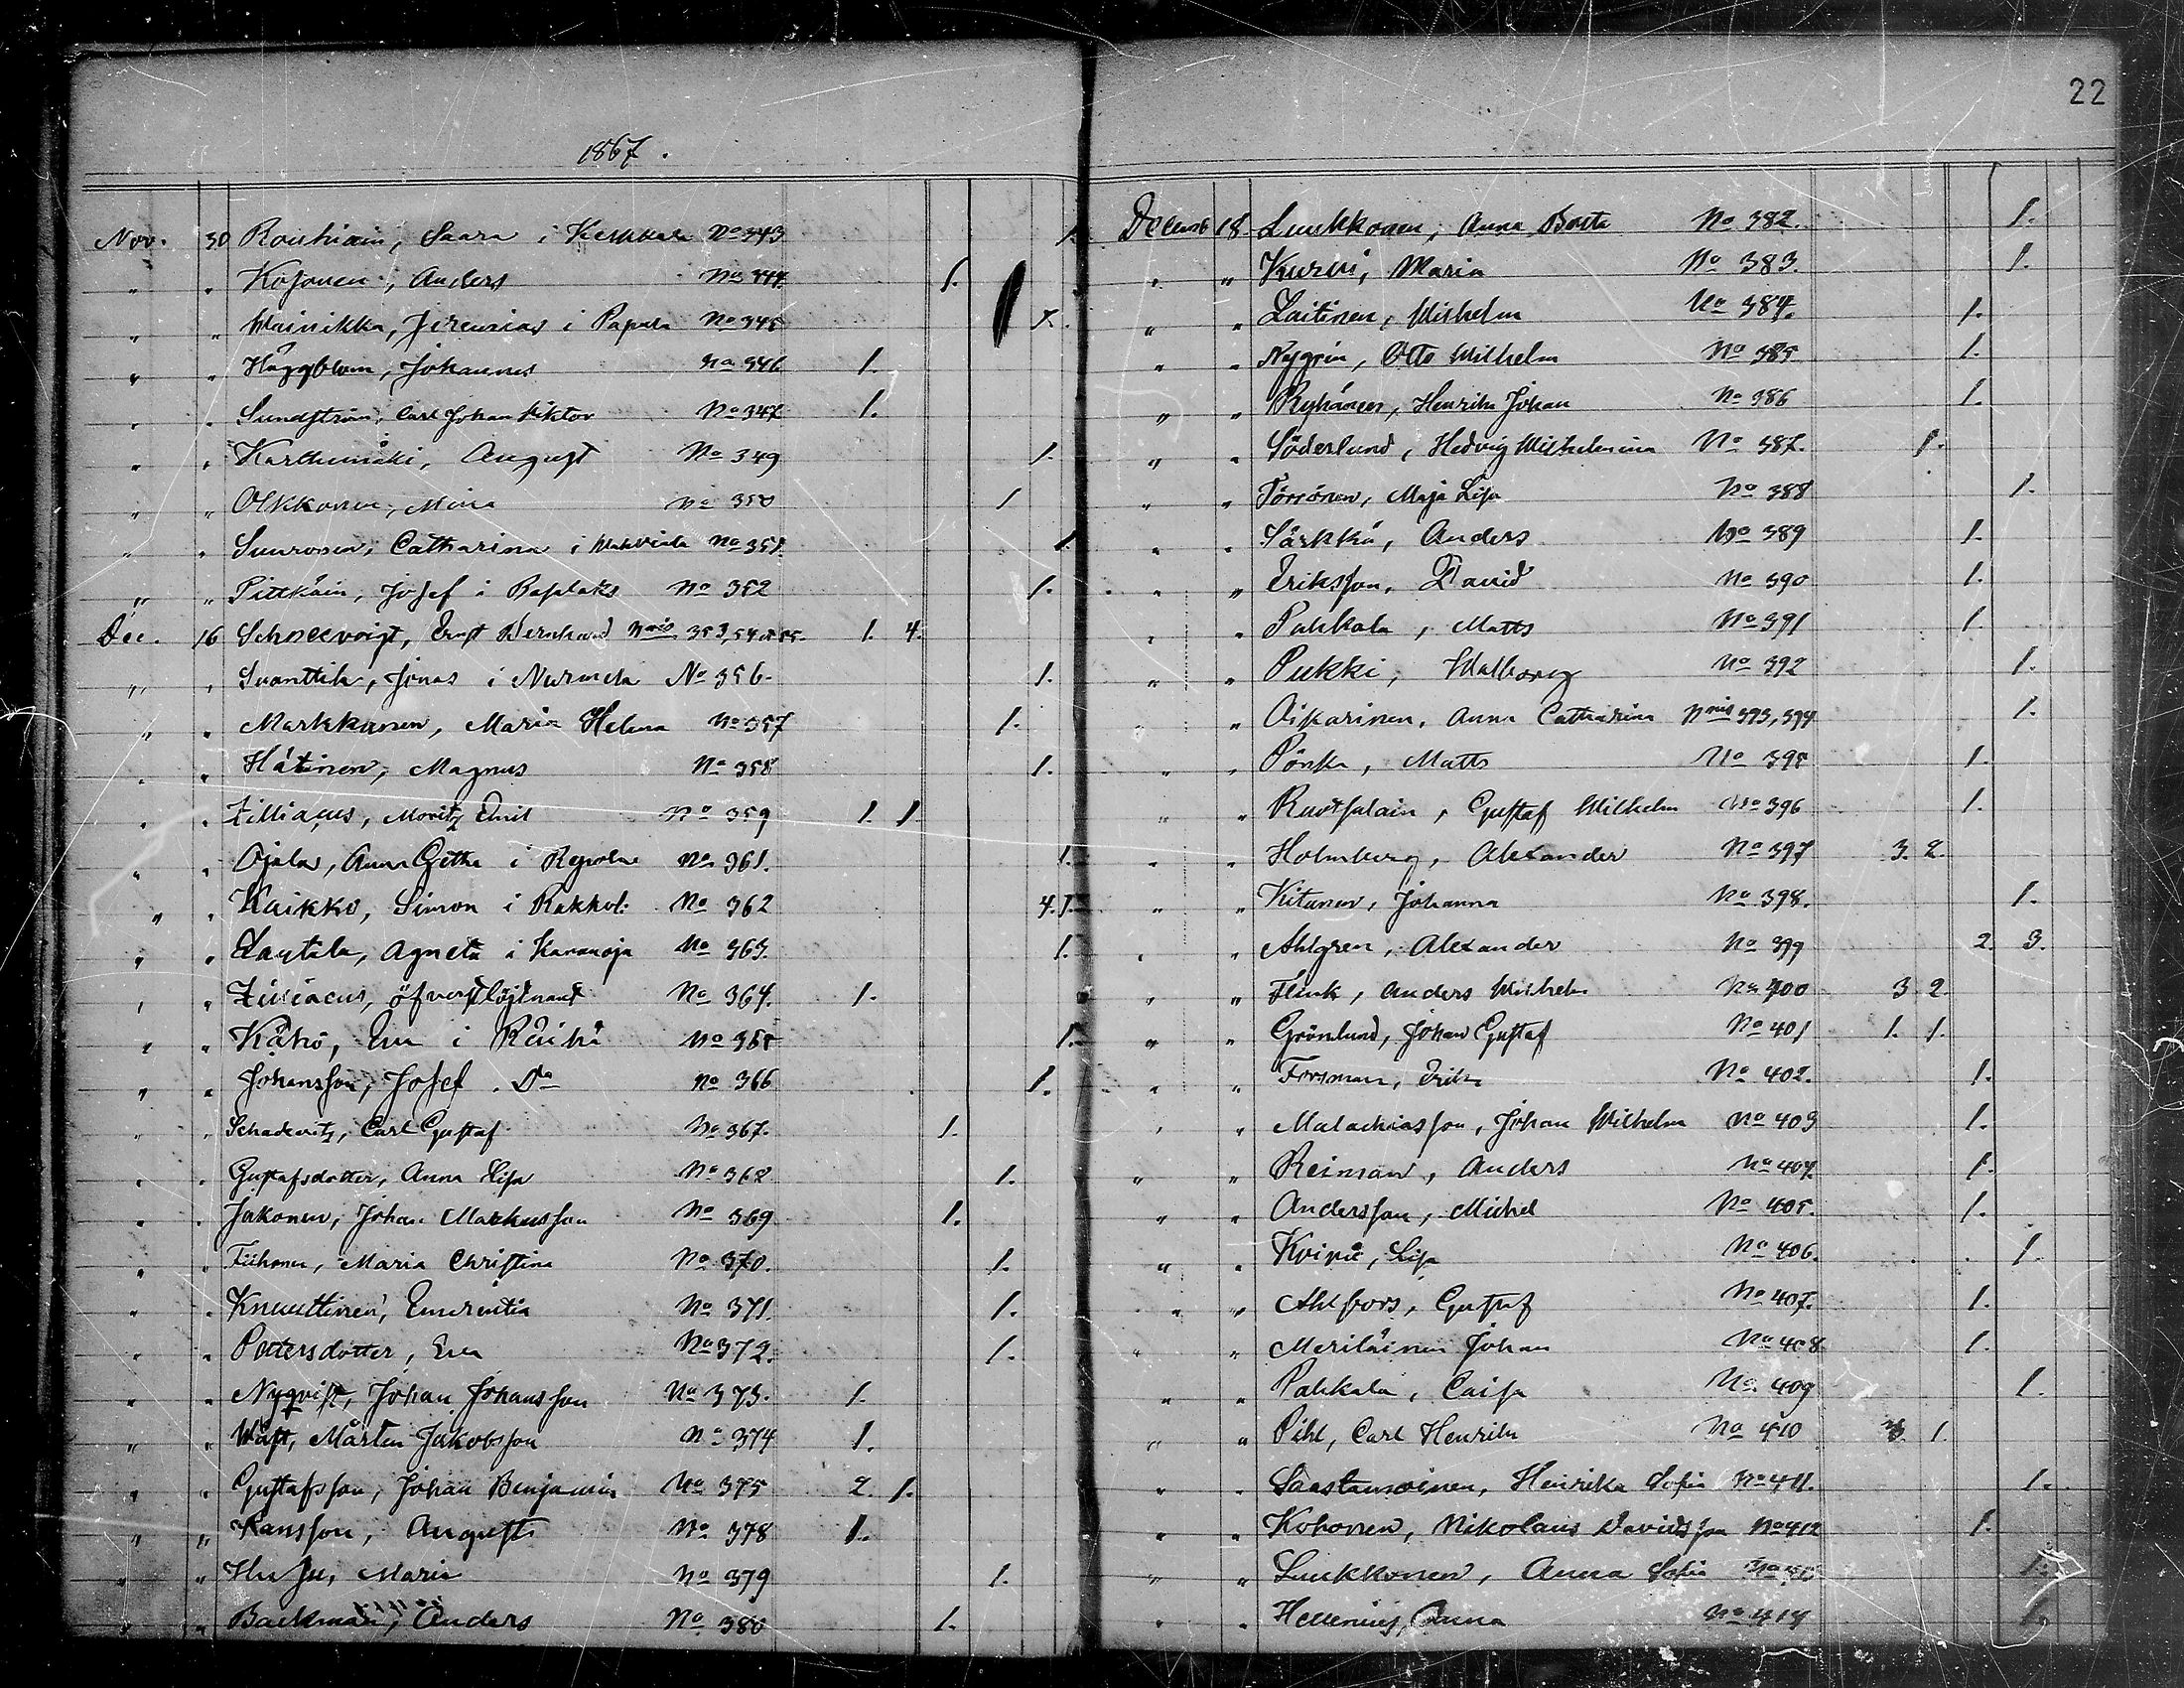 22
1867.
Nov. 30 Saara i No 343 1.
" " Kosonen, Anders No 344 1.
" " Wainikka, Jeremias i Papula No 345
" " Häggblom, Johannes No 346 1.
" " Sundström, Carl Johan Viktor No 347 1.
" " August No 349 1.
" " Olkkonen, Mina No 350 1
" " Suuronen, Catharina i No 351 1.
" " Pitkäin, Josef i No 352 1.
Dec. 16 Schneevoigt, Ernst Bernhard Nris 353, 54 o 55. 1. 4.
" " Suanttila, Jonas i Nurmela No 356. 1.
" " Markkanen, Maria Helena No 357 1.
" " Hätinen, Magnus No 358 1.
" " Zilliacus, Moritz Emil No 359 1. 1
" " Ojala, Anna Getha i No 361. 1.
" " Kaikko, Simon i Rakkol: No 362 4. 1.
" " Lautala, Agneta i Karanoja No 363. 1.
" " Zilliacus, öfverstlöjtnant No 364. 1.
" " Eva i No 365 1.
" " Johansson, Josef. Do No 366 1.
" " Schadewitz, Carl Gustaf No 367. 1.
" " Gustafsdotter, Anna Lisa No 368 1.
" " Jakonen, Johan Markusson No 369 1.
" " Tiihonen, Maria Christina No 370. 1.
" " Knuuttinen, Emerentia No 371. 1.
" " Pettersdotter, Eva No 372. 1.
" " Nyqvist, Johan Johansson No 373. 1.
" " Wäst, Mårten Jakobsson No 374 1.
" " Gustafsson, Johan Benjamin No 375 2. 1.
" " Hansson, August No 378 1.
" " Maria No 379 1.
" " Backman, Anders No 380 1.
Decemb 18. Luukkonen, Anna Beata No 382. 1.
" " Kurvi, Maria No 383. 1.
" " Laitinen, Wilhelm No 384. 1.
" " Nygrén, Otto Wilhelm No 385 1.
" " Ryhänen, Henrik Johan No 386 1.
" " Söderlund, Hedvig Wilhelmina No 387. 1.
" " Törrönen, Maja Lisa No 388 1.
" " Särkkä, Anders No 389 1.
" " Eriksson, David No 390 1.
" " Pakkala, Matts No 391 1.
" " Pukki, Walborg No 392 1.
" " Oikarinen, Anna Catharina Nris 393, 394 1.
" " Pönkä, Matts No 395 1.
" " Ruotsalain, Gustaf Wilhelm No 396 1.
" " Holmberg, Alexander No 397 3. 2.
" " Kitunen, Johanna No 398. 1.
" " Ahlgren, Alexander No 399 2. 3.
" " Flink, Anders Wilhelm No 400 3 2.
" " Grönlund, Johan Gustaf No 401 1. 1.
" " Forsman, Erik No 402. 1.
" " Malachiasson, Johan Wilhelm No 403 1.
" " Reiman, Anders No 404 1.
" " Andersson, Michel No 405. 1.
" " Lisa No 406. 1.
" " Ahlfors, Gustaf No 407. 1.
" " Meriläinen Johan No 408 1.
" " Pakkala, Caisa No 409 1.
" " Pihl, Carl Henrik No 410 1.
" " Saastamoinen, Henrika Sofia No 411. 1.
" " Kohonen, Nikolaus Davidsson No 412 1.
" " Luukkonen, Anna Sofia 1.
" " Hellenius, Anna No 414 1.